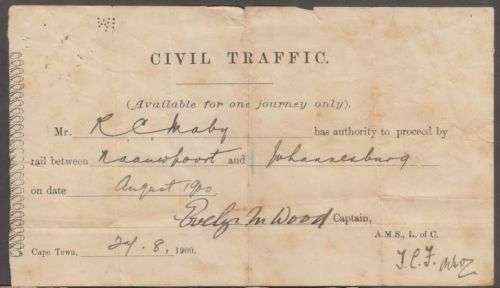 CIVIL TRAFFIC.
(Available for one journey only).
Mr. R C Maby has authority to proceed by
rail between Naauwpoort and Johannesburg
on date August 1900
Evelyn M Wood Captain,
A.M.S., L. of C.
Cape Town, 24.8. 1900.